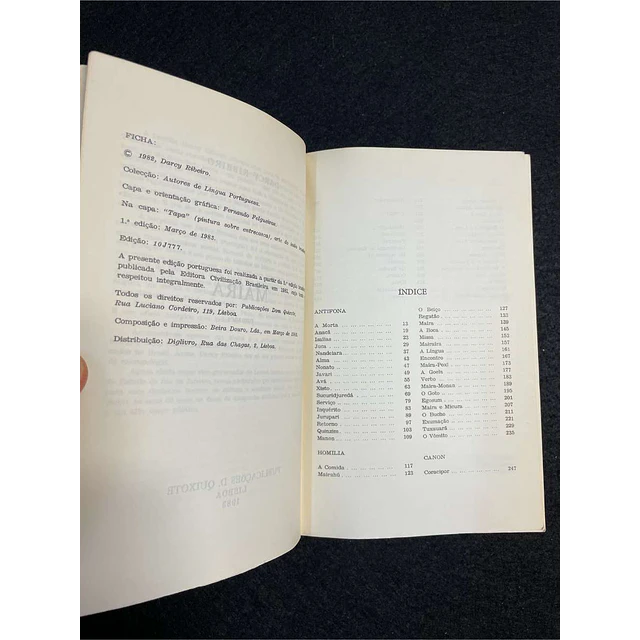 FICHA:
© 1982, Darcy Ribeiro.
Colecção: Autores de Língua Portuguesa.
Capa e orientação gráfica: Fernando Felgueiras.
Na capa: "Tapa" (pintura sobre entrecasca), arte de
1.ª edição: Março de 1983.
Edição: 10J777.
A presente edição portuguesa foi realizada a partir da 5.ª edição
publicada pela Editora Civilização Brasileira em 1981, cujo
respeitou integralmente.
Todos os direitos reservados por: Publicações Dom Quixote,
Rua Luciano Cordeiro, 119, Lisboa.
Composição e impressão: Beira Douro, Lda., em Março de 1983.
Distribuição: Diglivro, Rua das Chagas, 2, Lisboa.
MAÍRA
PUBLICAÇÕES D. QUIXOTE
LISBOA
1983
ÍNDICE
ANTÍFONA
A Morta 13
Anacã 19
Isaías 23
Juca 29
Nandeiara 33
Alma 39
Nonato 43
Javari 49
Avá 53
Xisto 59
Sucuridjuredá 63
Serviço 69
Inquérito 73
Jurupari 89
Retorno 93
Quinzim 103
Manon 109
HOMILIA
A Comida 117
Mairahú 123
O Beiço 127
Regatão 133
Maíra 139
A Boca 145
Missa 151
Mairaíra 157
A Língua 161
Encontro 165
Maíra-Poxĩ 171
A Goela 179
Verbo 183
Maíra-Monan 189
O Goto 195
Egosum 201
Maíra e Micura 207
O Bucho 211
Exumação 221
Tuxauarã 229
O Vômito 235
CANON
Coracepor 247